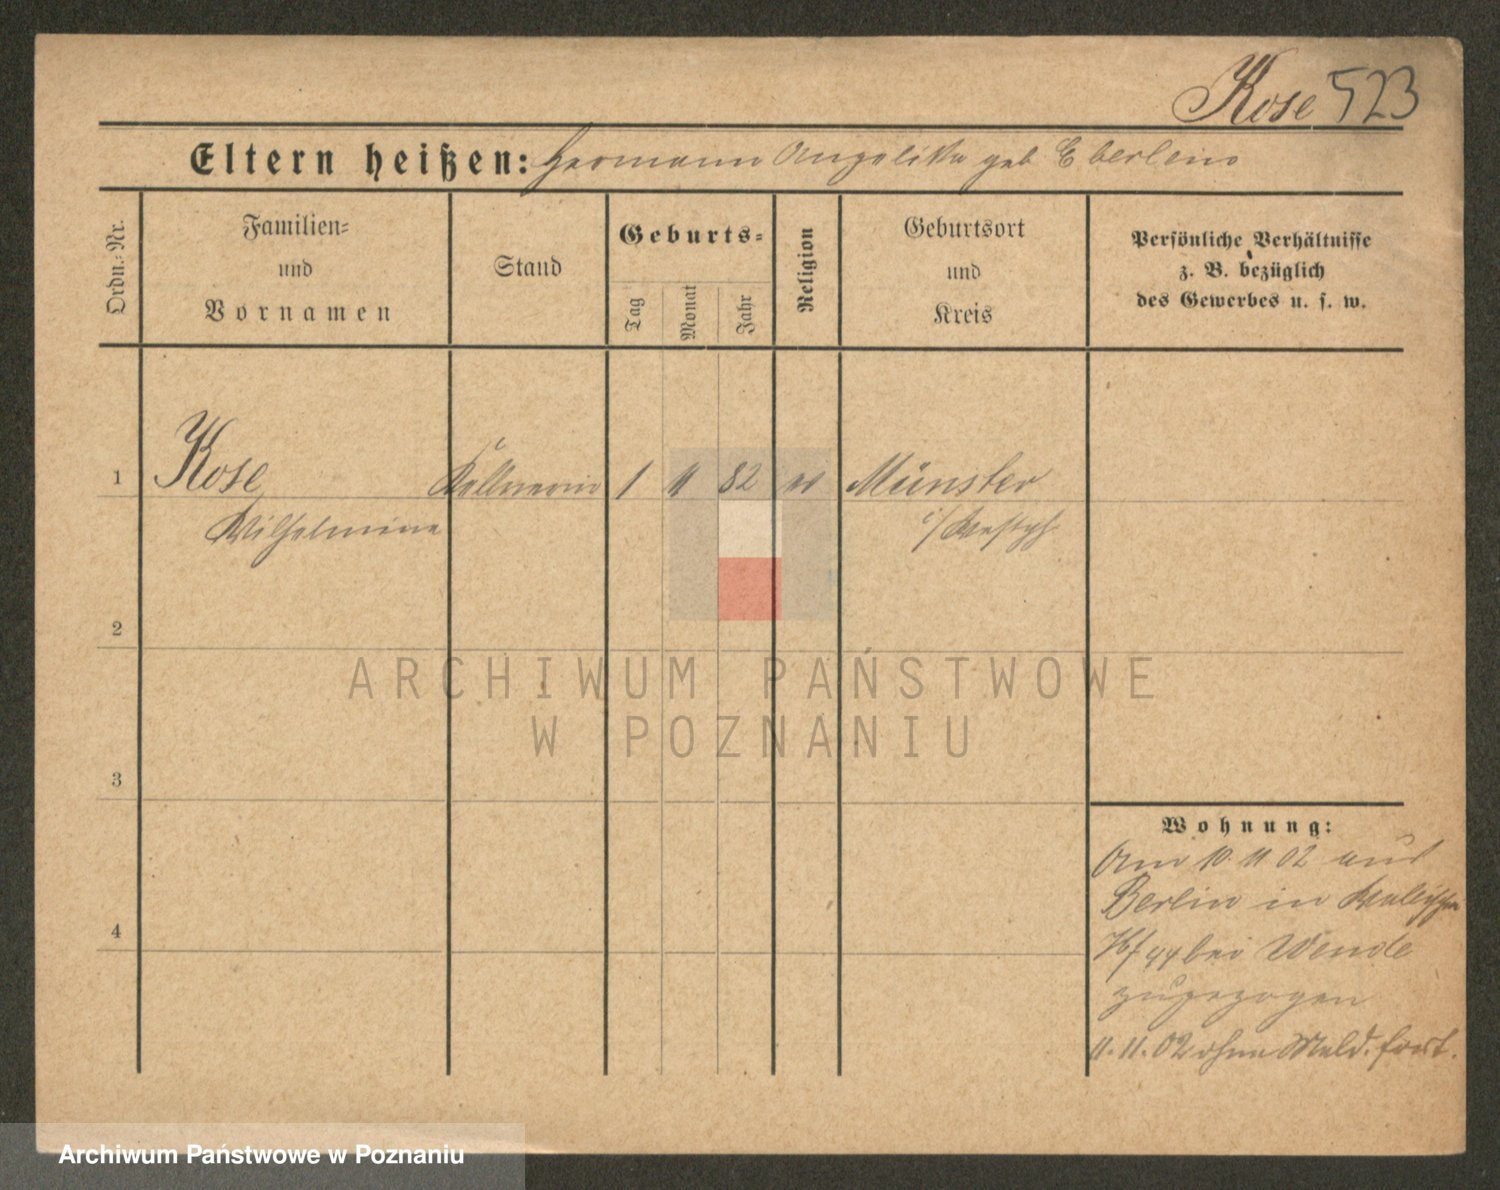 Kose 523
Eltern heißen: Hermann Angelika geb Eberlein
Ordn.-Nr.
Familien-
und
Vornamen
Stand
Geburts-
Tag
Monat
Jahr
Religion
Geburtsort
und
Kreis
Persönliche Verhältnisse
z. B. bezüglich
des Gewerbes u. s. w.
1 Kose Kellnerin 1 11 82 ev Münster
Wilhelmine i/Westph
2
ARCHIWUM PAŃSTWOWE
W POZNANIU
3
4
Wohnung:
Am 10 11 02 aus
Berlin in
44 bei Wende
zugezogen
11.11.02 ohne Meld. fort.
Archiwum Państwowe w Poznaniu